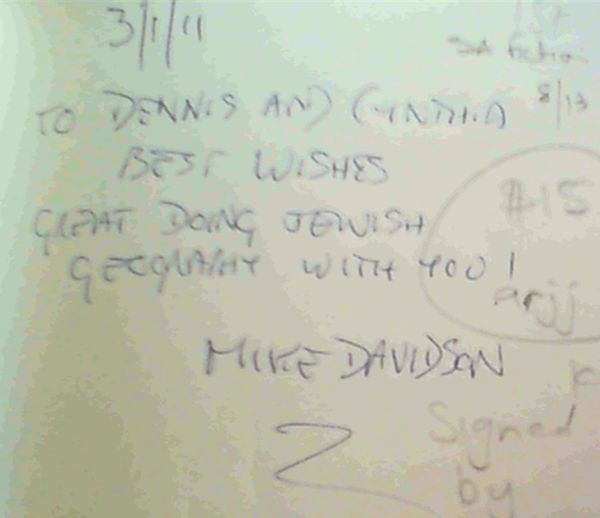 3/1/11
TO DENNIS AND CYNTHIA
BEST WISHES
GREAT DOING JEWISH
GEOGRAPHY WITH YOU!
MIKE DAVIDSON
SA fiction
8/13
$15
arjj
Signed
by